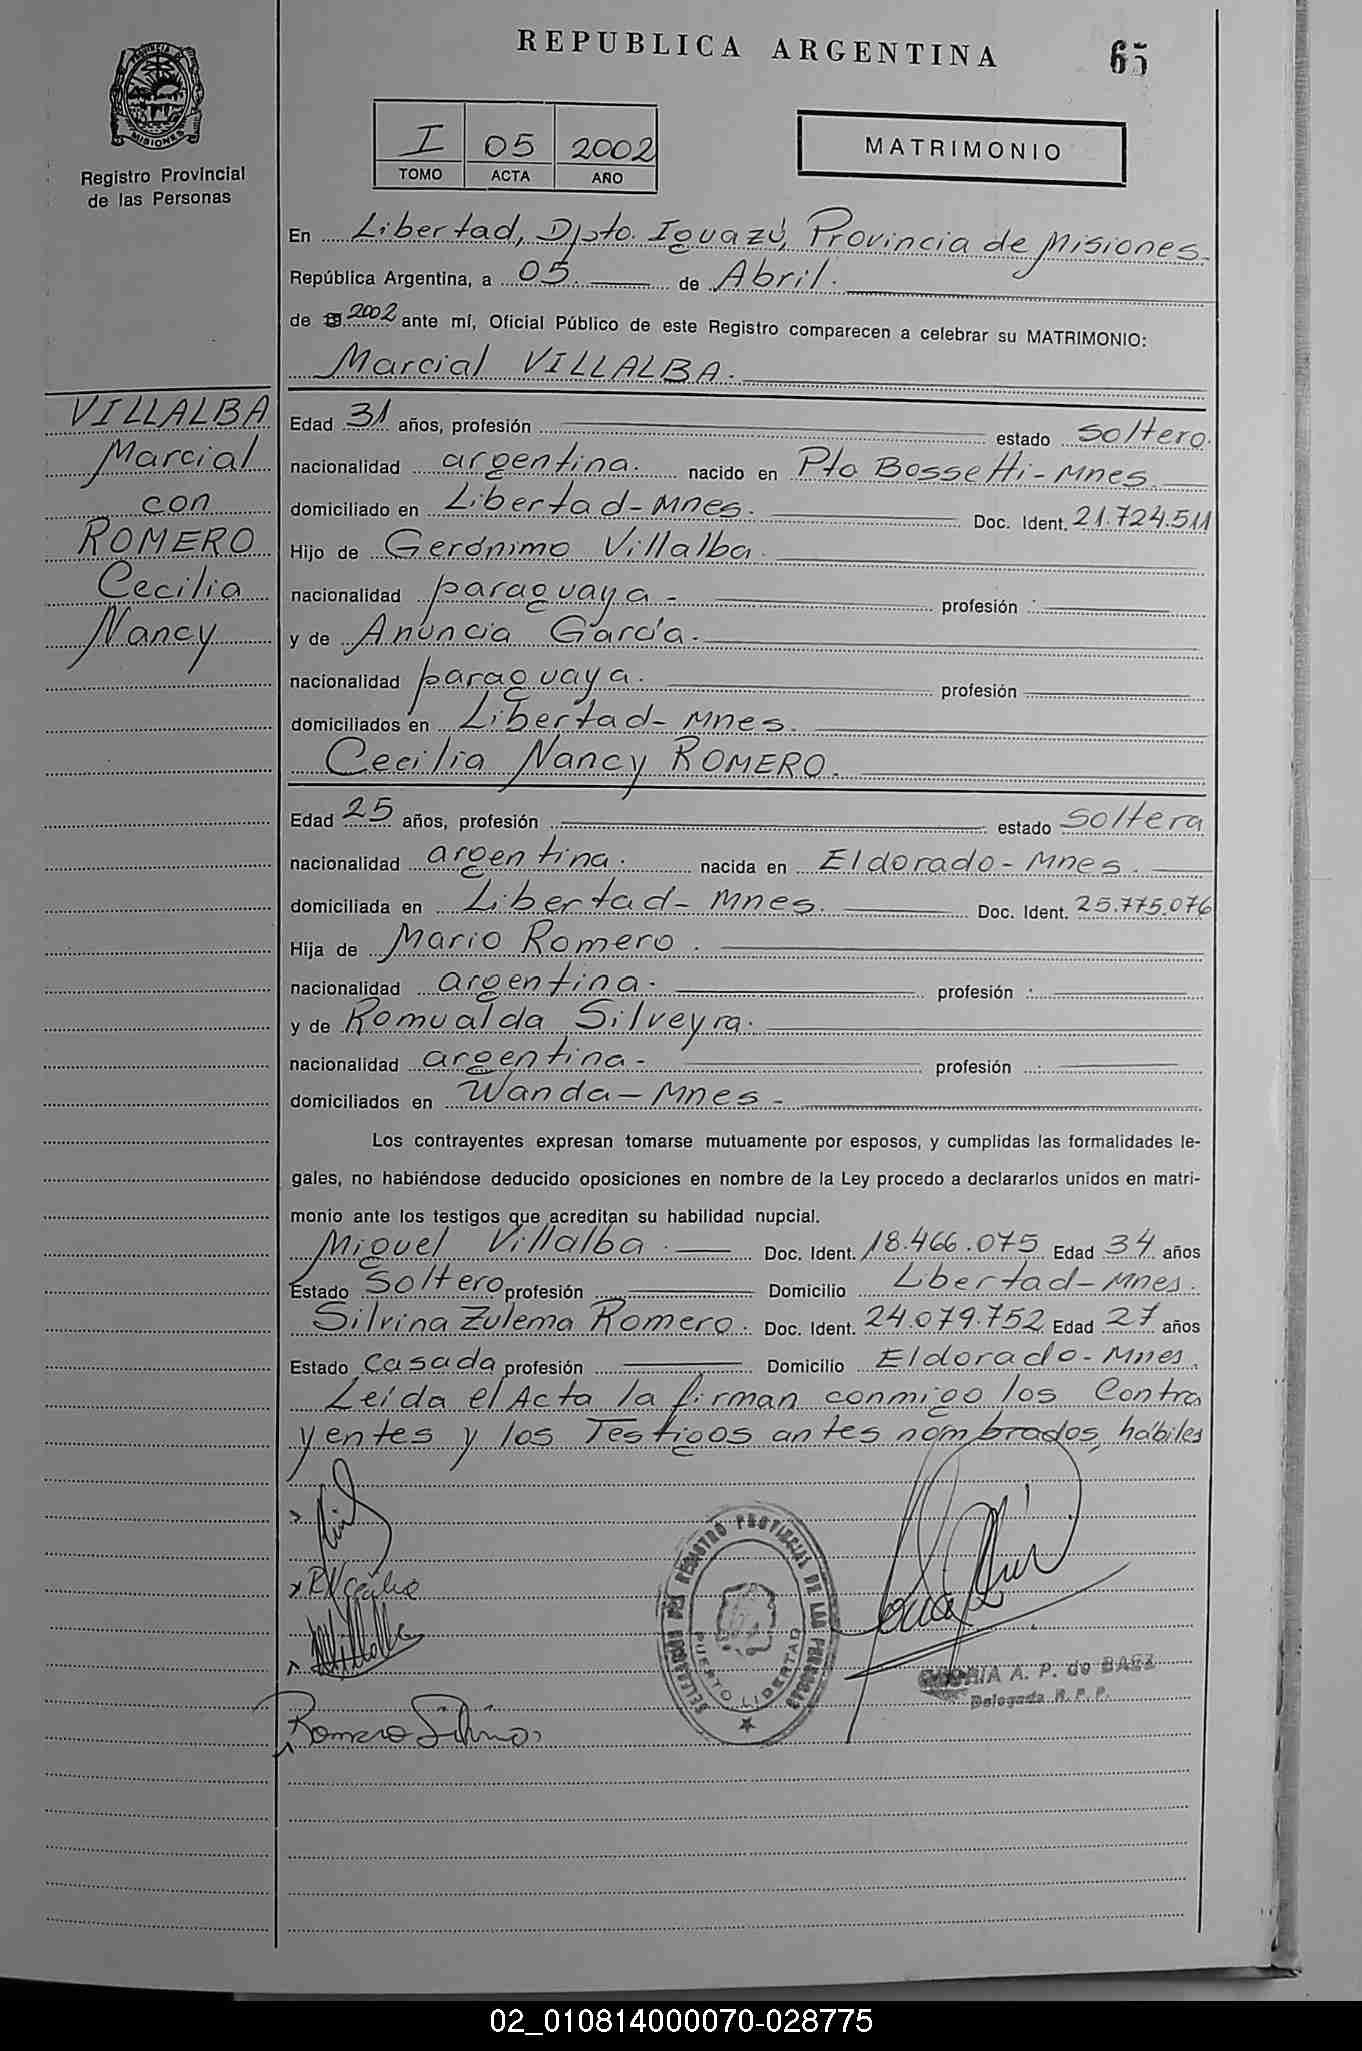 REPUBLICA ARGENTINA
65
PROVINCIA DE MISIONES
Registro Provincial
de las Personas
I 05 2002
TOMO ACTA AÑO
MATRIMONIO
En Libertad, Dpto. Iguazú, Provincia de Misiones.
República Argentina, a 05. de Abril.
de 2002 ante mí, Oficial Público de este Registro comparecen a celebrar su MATRIMONIO:
Marcial VILLALBA.
VILLALBA
Marcial
con
ROMERO
Cecilia
Nancy
Edad 31 años, profesión estado soltero.
nacionalidad argentina. nacido en Pto Bossetti-Mnes.
domiciliado en Libertad-Mnes. Doc. Ident. 21.724.511
Hijo de Gerónimo Villalba.
nacionalidad paraguaya - profesión
y de Anuncia García.
nacionalidad paraguaya. profesión
domiciliados en Libertad-Mnes.
Cecilia Nancy ROMERO.
Edad 25 años, profesión estado soltera
nacionalidad argentina. nacida en Eldorado-Mnes.
domiciliada en Libertad-Mnes. Doc. Ident. 25.775.076
Hija de Mario Romero.
nacionalidad argentina. profesión
y de Romualda Silveyra.
nacionalidad argentina- profesión
domiciliados en Wanda-Mnes-
Los contrayentes expresan tomarse mutuamente por esposos, y cumplidas las formalidades le-
gales, no habiéndose deducido oposiciones en nombre de la Ley procedo a declararlos unidos en matri-
monio ante los testigos que acreditan su habilidad nupcial.
Miguel Villalba. Doc. Ident. 18.466.075 Edad 34 años
Estado Soltero profesión Domicilio Libertad-Mnes.
Silvina Zulema Romero. Doc. Ident. 24.079.752 Edad 27 años
Estado casada profesión Domicilio Eldorado-Mnes.
Leída el Acta la firman conmigo los Contra
yentes y los Testigos antes nombrados, hábiles
RN Cecilia
MVillalba
Romero Silvina
REGISTRO PROVINCIAL DE LAS PERSONAS
PUERTO LIBERTAD
A. P. de BAEZ
Delegada R. P. P.
02_010814000070-028775